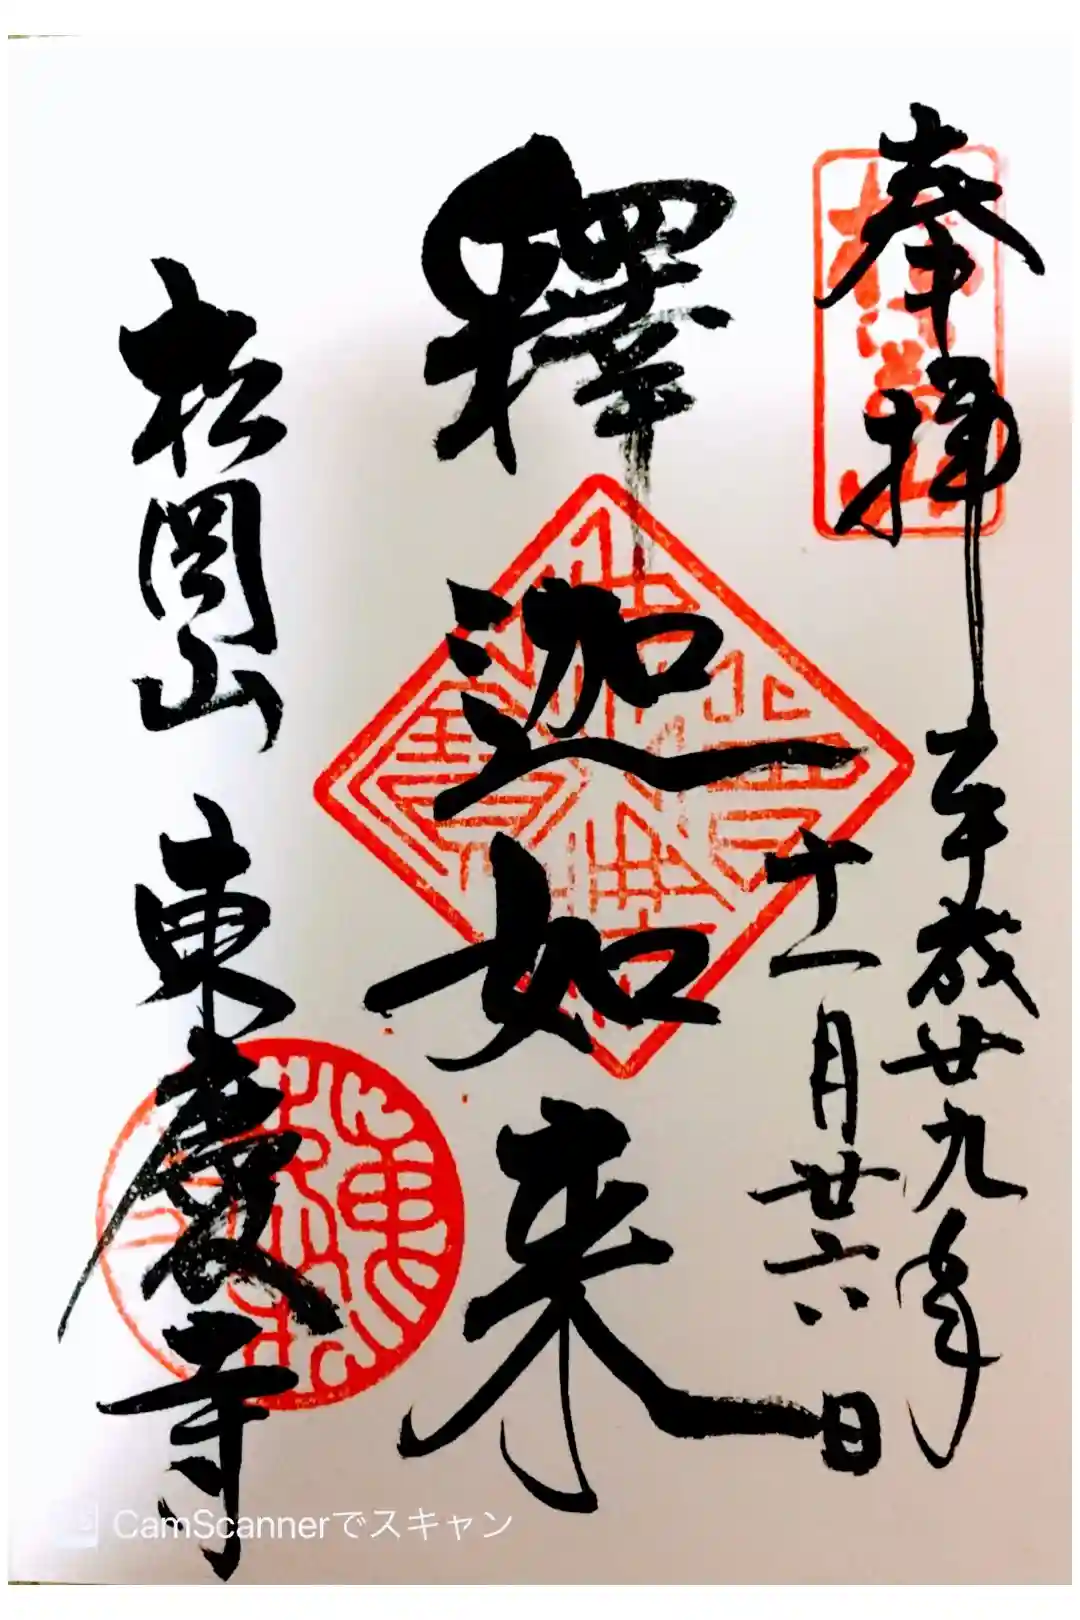 奉拝
平成廿九年
十一月廿六日
釋迦如来
松岡山
東慶寺
CamScannerでスキャン